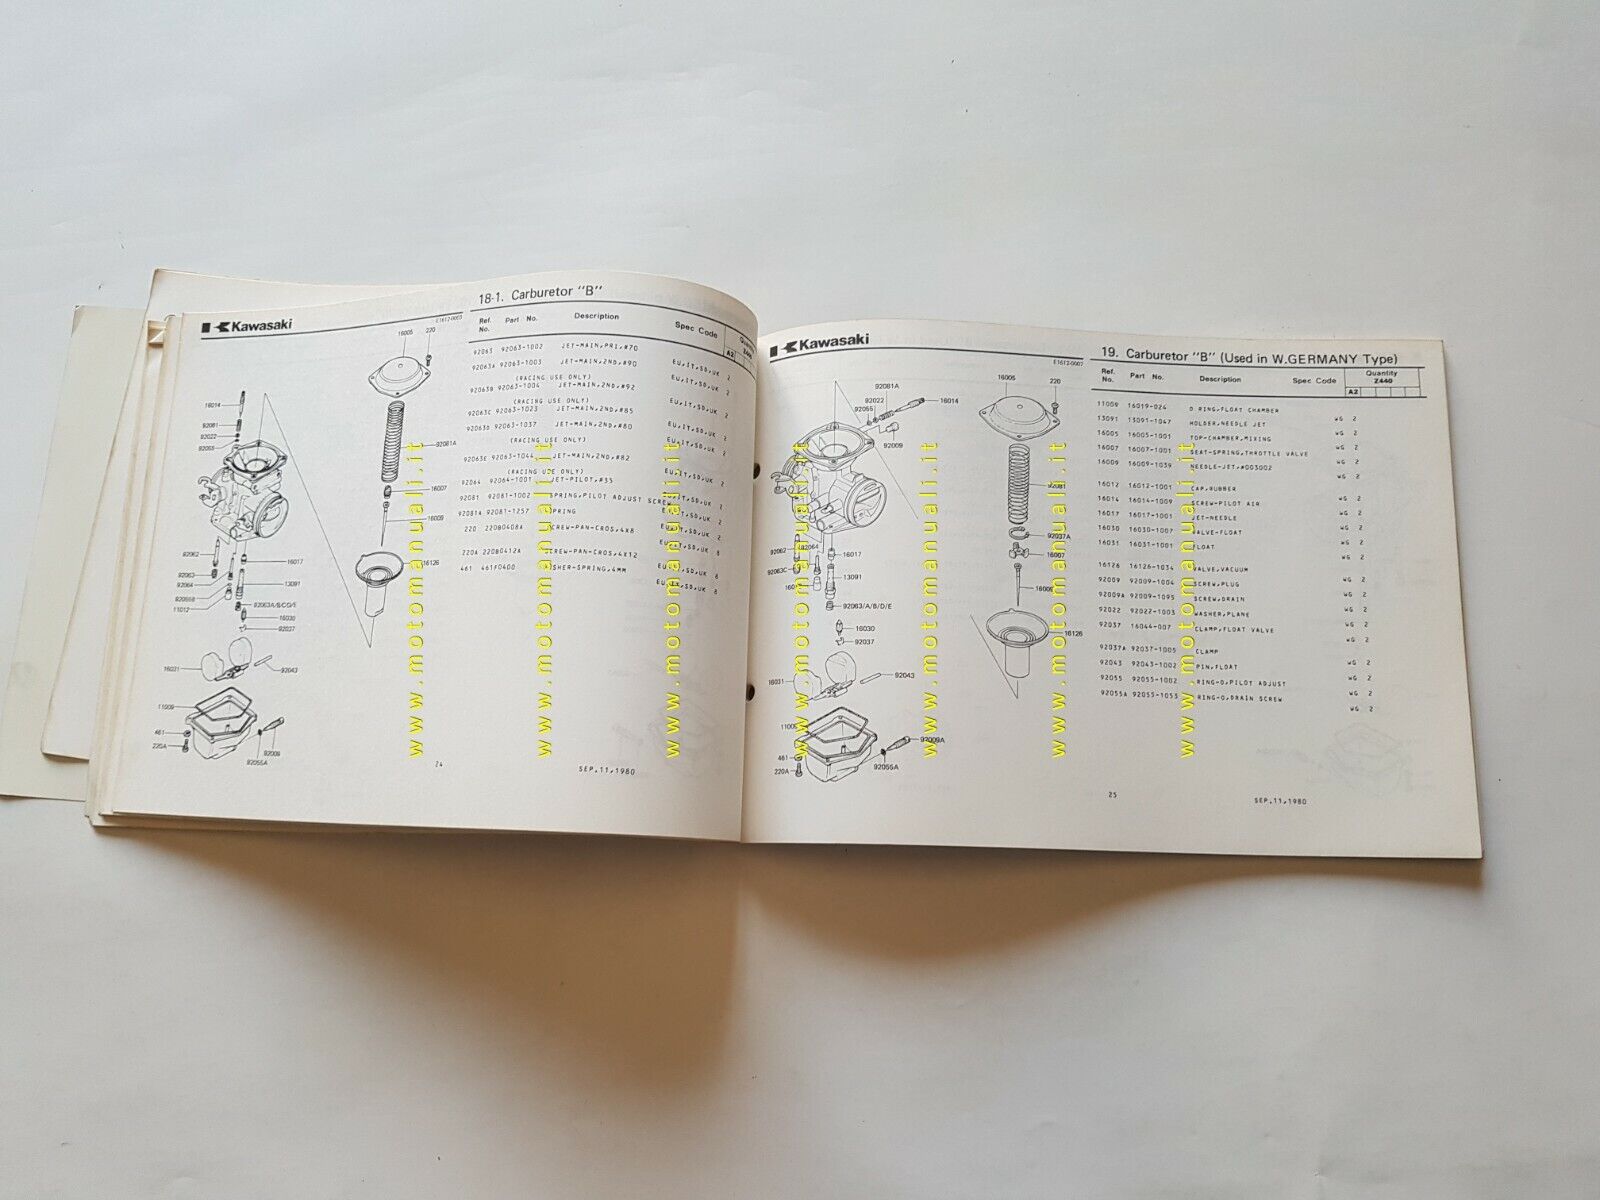 Kawasaki
E1612-0003
18-1. Carburetor "B"
Ref. No. Part No. Description Spec Code Quantity
A2
92063 92063-1002 JET-MAIN,PRI,#70 EU,IT,SD,UK 2
92063A 92063-1003 JET-MAIN,2ND,#90 EU,IT,SD,UK 2
(RACING USE ONLY)
92063B 92063-1004 JET-MAIN,2ND,#92 EU,IT,SD,UK 2
(RACING USE ONLY)
92063C 92063-1023 JET-MAIN,2ND,#85 EU,IT,SD,UK 2
92063D 92063-1037 JET-MAIN,2ND,#80 EU,IT,SD,UK 2
(RACING USE ONLY)
92063E 92063-1044 JET-MAIN,2ND,#82 EU,IT,SD,UK 2
(RACING USE ONLY)
92064 92064-1001 JET-PILOT,#35 EU,IT,SD,UK 2
92081 92081-1002 SPRING,PILOT ADJUST SCREW EU,IT,SD,UK 2
92081A 92081-1257 SPRING EU,IT,SD,UK 2
220 220B0408A SCREW-PAN-CROS,4X8 EU,IT,SD,UK 8
220A 220B0412A SCREW-PAN-CROS,4X12 EU,IT,SD,UK 8
461 461F0400 WASHER-SPRING,4MM EU,IT,SD,UK 8
16005
220
16014
92081
92022
92055
92081A
16007
16009
16126
92062
92063
92064
92055B
11012
16017
13091
92063A/B/C/D/E
16030
92037
16031
92043
11009
461
220A
92009
92055A
24
SEP.11,1980
Kawasaki
E1612-0007
19. Carburetor "B" (Used in W.GERMANY Type)
Ref. No. Part No. Description Spec Code Quantity
Z440
A2
11009 16019-024 O RING,FLOAT CHAMBER WG 2
13091 13091-1047 HOLDER,NEEDLE JET WG 2
16005 16005-1001 TOP-CHAMBER,MIXING WG 2
16007 16007-1001 SEAT-SPRING,THROTTLE VALVE WG 2
16009 16009-1039 NEEDLE-JET,#003002 WG 2
16012 16012-1001 CAP,RUBBER WG 2
16014 16014-1009 SCREW-PILOT AIR WG 2
16017 16017-1001 JET-NEEDLE WG 2
16030 16030-1007 VALVE-FLOAT WG 2
16031 16031-1001 FLOAT WG 2
16126 16126-1034 VALVE,VACUUM WG 2
92009 92009-1004 SCREW,PLUG WG 2
92009A 92009-1095 SCREW,DRAIN WG 2
92022 92022-1003 WASHER,PLANE WG 2
92037 16044-007 CLAMP,FLOAT VALVE WG 2
92037A 92037-1005 CLAMP WG 2
92043 92043-1002 PIN,FLOAT WG 2
92055 92055-1002 RING-O,PILOT ADJUST WG 2
92055A 92055-1053 RING-O,DRAIN SCREW WG 2
92081A
92022
92055
16014
92009
16005
220
92081
92037A
16007
16009
16126
92062
92064
92063C
16017
13091
92063/A/B/D/E
16030
92037
16031
92043
11009
461
220A
92009A
92055A
25
SEP.11,1980
www.motomanuali.it
www.motomanuali.it
www.motomanuali.it
www.motomanuali.it
www.motomanuali.it
www.motomanuali.it
www.motomanuali.it